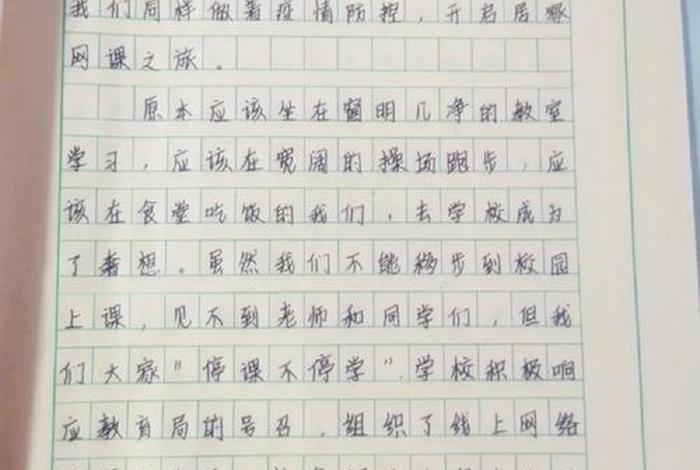 我们同样做着疫情防控，开启居家
网课之旅。
原本应该坐在窗明几净的教室
学习，应该在宽阔的操场跑步，应
该在食堂吃饭的我们，去学校成为
了奢想。虽然我们不能移步到校园
上课，见不到老师和同学们，但我
们大家"停课不停学"，学校积极响
应教育局的号召，组织了线上网络